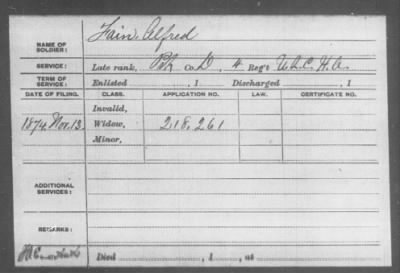 NAME OF SOLDIER: Fain, Alfred
SERVICE: Late rank, Pvt Co. D, 4 Reg't U.S.C. H.A.
TERM OF SERVICE: Enlisted , 1 Discharged , 1
DATE OF FILING. CLASS. APPLICATION NO. LAW. CERTIFICATE NO.
Invalid,
1874, Nov. 13. Widow, 218,261
Minor,
ADDITIONAL SERVICES:
REMARKS:
Died , 1 , at